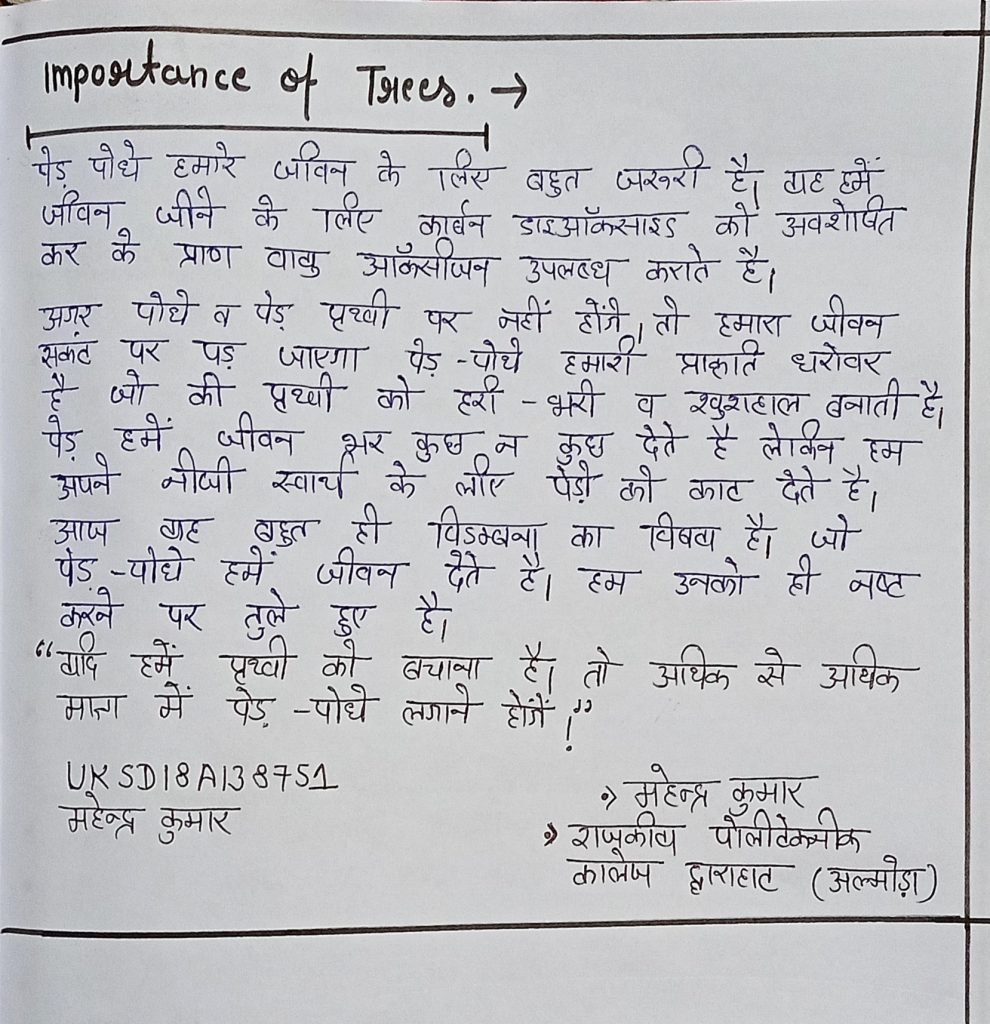 Importance of Trees. →
पेड़ पोधे हमारे जीवन के लिए बहुत जरूरी है। यह हमें
जीवन जीने के लिए कार्बन डाइऑक्साइड को अवशोषित
कर के प्राण वायु ऑक्सीजन उपलब्ध कराते है।
अगर पोधे व पेड़ पृथ्वी पर नहीं होंगे, तो हमारा जीवन
संकट पर पड़ जाएगा पेड़-पोधे हमारी प्राकृति धरोवर
है जो की पृथ्वी को हरी-भरी व खुशहाल बनाती है।
पेड़ हमें जीवन भर कुछ न कुछ देते है लेकिन हम
अपने नीजी स्वार्थ के लीए पेड़ो को काट देते है।
आज यह बहुत ही विडम्बना का विषय है। जो
पेड़-पोधे हमें जीवन देते है। हम उनको ही नष्ट
करने पर तुले हुए है।
“यदि हमें पृथ्वी को बचाना है। तो अधिक से अधिक
मात्रा में पेड़-पोधे लगाने होगें!”
UKSD18A138751
महेन्द्र कुमार
महेन्द्र कुमार
राजकीय पॉलीटेक्नीक
कालेज द्वाराहाट (अल्मोड़ा)